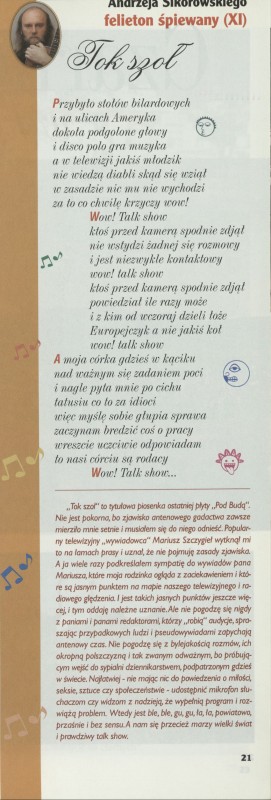 Andrzeja Sikorowskiego
felieton śpiewany (XI)
Tok szoł
Przybyło stołów bilardowych
i na ulicach Ameryka
dokoła podgolone głowy
i disco polo gra muzyka
a w telewizji jakiś młodzik
nie wiedzą diabli skąd się wziął
w zasadzie nic mu nie wychodzi
za to co chwilę krzyczy wow!
Wow! Talk show
ktoś przed kamerą spodnie zdjął
nie wstydzi żadnej się rozmowy
i jest niezwykle kontaktowy
wow! talk show
ktoś przed kamerą spodnie zdjął
powiedział ile razy może
i z kim od wczoraj dzieli łoże
Europejczyk a nie jakiś koł
wow! talk show
A moja córka gdzieś w kąciku
nad ważnym się zadaniem poci
i nagle pyta mnie po cichu
tatusiu co to za idioci
więc myślę sobie głupia sprawa
zaczynam bredzić coś o pracy
wreszcie uczciwie odpowiadam
to nasi córciu są rodacy
Wow! Talk show...
„Tok szoł” to tytułowa piosenka ostatniej płyty „Pod Budą”.
Nie jest pokorna, bo zjawisko antenowego gadactwa zawsze
mierziło mnie setnie i musiałem się do niego odnieść. Popular-
ny telewizyjny „wywiadowca” Mariusz Szczygieł wytknął mi
to na łamach prasy i uznał, że nie pojmuję zasady zjawiska.
A ja wiele razy podkreślałem sympatię do wywiadów pana
Mariusza, które moja rodzinka ogląda z zaciekawieniem i któ-
re są jasnym punktem na mapie naszego telewizyjnego i ra-
diowego ględzenia. I jest takich jasnych punktów jeszcze wię-
cej, i tym oddaję należne uznanie. Ale nie pogodzę się nigdy
z paniami i panami redaktorami, którzy „robią” audycje, spra-
szając przypadkowych ludzi i pseudowywiadami zapychają
antenowy czas. Nie pogodzę się z bylejakością rozmów, ich
okropną polszczyzną i tak zwanym odważnym, bo próbują-
cym wejść do sypialni dziennikarstwem, podpatrzonym gdzieś
w świecie. Najłatwiej - nie mając nic do powiedzenia o miłości,
seksie, sztuce czy społeczeństwie - udostępnić mikrofon słu-
chaczom czy widzom z nadzieją, że wypełnią program i roz-
wiążą problem. Wtedy jest ble, ble, gu, gu, la, la, powiatowo,
przaśnie i bez sensu. A nam się przecież marzy wielki świat
i prawdziwy talk show.
21